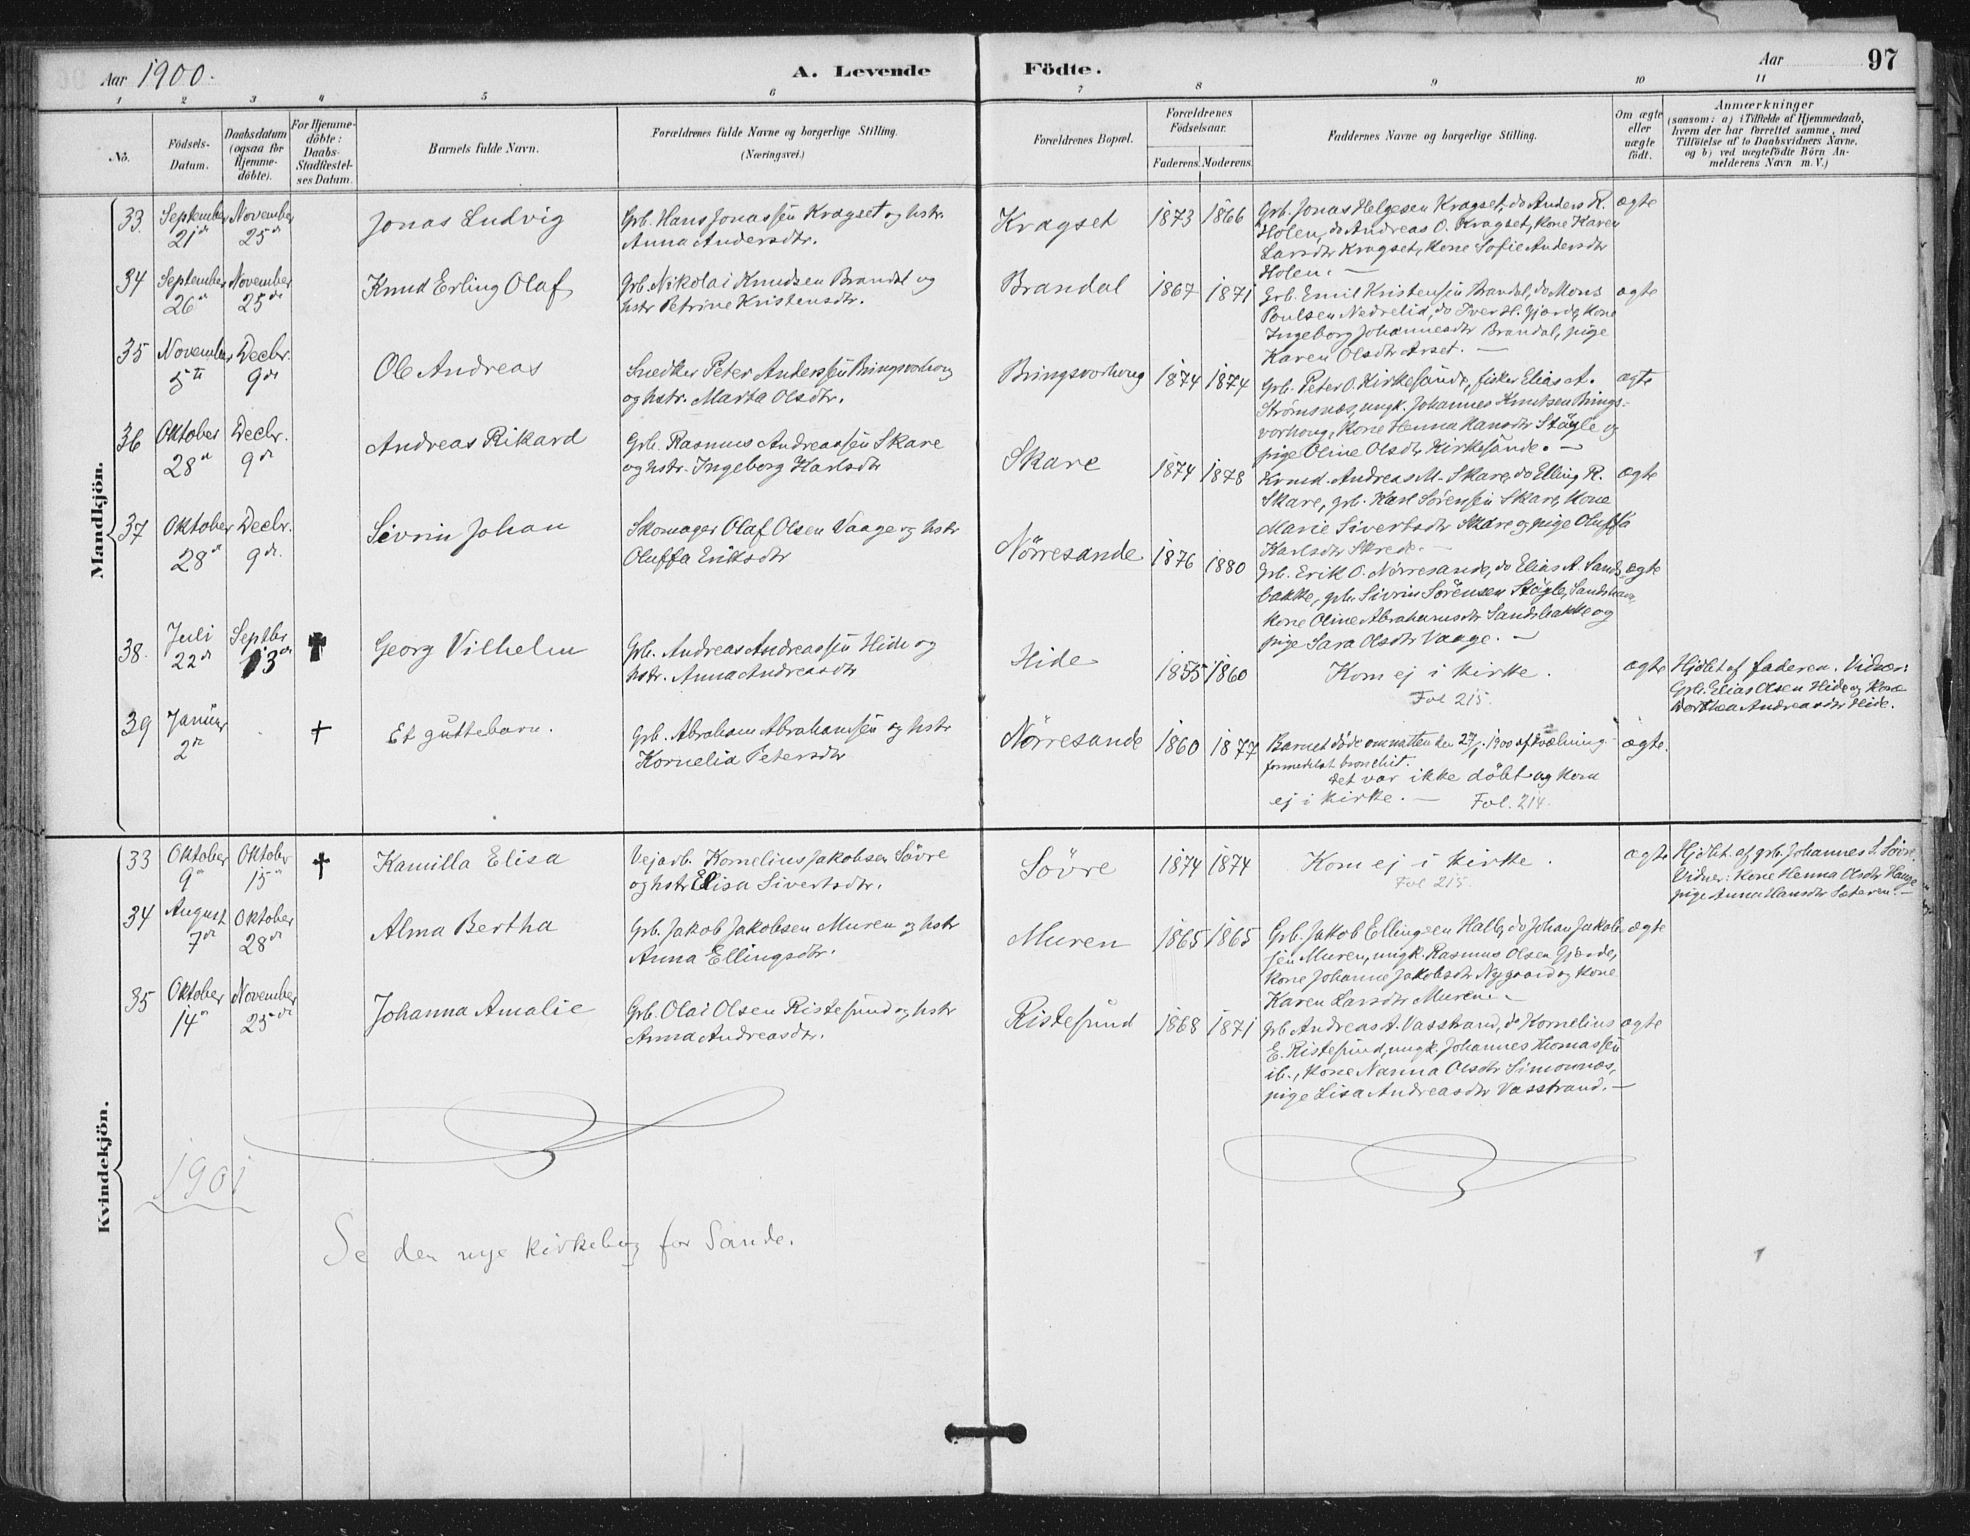 Aar 1900.
A. Levende
Födte.
Aar
97
1 2 3 4 5 6 7 8 9 10 11
No.
Födsels-Datum.
Daabsdatum (ogsaa for Hjemme-döbte).
For Hjemme-döbte: Daabs-Stadfæstel-ses Datum.
Barnets fulde Navn.
Forældrenes fulde Navne og borgerlige Stilling.
(Næringsvei.)
Forældrenes Bopæl.
Forældrenes Födselsaar.
Faderens. Moderens.
Faddernes Navne og borgerlige Stilling.
Om ægte eller uægte födt.
Anmærkninger
(saasom: a) i Tilfælde af Hjemmedaab,
hvem der har forrettet samme, med
Tilföielse af to Daabsvidners Navne,
og b) ved uægtefödte Börn An-
melderens Navn m. V.)
Mandkjön.
33. September 21de November 25de Jonas Ludvig
Grb. Hans Jonassen Kragset og hstr.
Anna Andersdtr.
Kragset 1873 1866
Grb. Jonas Helgesen Kragset, do Anders R.
Holen, do Andreas O. Kragset, kone Karen
Larsdtr Kragset, kone Sofie Andersdtr
Holen. —
ægte
34 September 26de November 25de Knud Erling Olaf
Grb. Nikolai Knudsen Brandal og
hstr Petrine Kristensdtr.
Brandal 1867 1871
Grb. Emil Kristensen Brandal, do Mons
Poulsen Nedrelid, do Iver H. Gjærde, kone
Ingeborg Johannesdtr Brandal, pige
Karen Olsdtr Arset. —
ægte
35 November 5te Decbr. 9de Ole Andreas
Snedker Peter Anderssen Bringsvorhoug
og hstr. Marta Olsdtr.
Bringsvorhoug 1874 1874
Grb. Peter O. Kirkesande, fisker Elias A.
Strømsnæs, ungk. Johannes Knutsen Brings-
vorhoug, kone Henna Hansdtr Støyle og
pige Oline Olsdtr Kirkesande. —
ægte
36 Oktober 28de Decbr. 9de Andreas Rikard
Grb. Rasmus Andreassen Skare
og hstr. Ingeborg Karlsdtr
Skare 1874 1878
Andreas M. Skare, do Elling R.
Skare, grb. Karl Sørensen Skare, kone
Marie Sivertsdtr Skare og pige Oluffa
Karlsdtr Skrede. —
ægte
37 Oktober 28de Decbr. 9de. Sivrin Johan
Skomager Olaf Olsen Vaage og hstr
Oluffa Eriksdtr
Nörresande 1876 1880
Grb. Erik O. Nörresande, do Elias A. Sands-
bakke, grb. Sivrin Sörensen Stöyle, Sandshavn,
kone Oline Abrahamsdtr Sandsbakke og
pige Sara Olsdtr Vaage. —
ægte
38. Juli 22de Septbr 13de ✝ Georg Vilhelm
Grb. Andreas Andreassen Hide og
hstr. Anna Andreasdtr
Hide 1855 1860
Kom ej i kirke.
Fol 215.
ægte
Hjdbt af faderen. Vidner:
Grb. Elias Olsen Hide og kone
Dorthea Andreasdtr Hide.
39 Januar 2de + Et guttebarn.
Grb. Abraham Abrahamsen og hstr
Kornelia Petersdtr
Nörresande 1860 1877
Barnet döde om natten den 27/1. 1900 af kvælning
formedelst bronchit.
Det var ikke döbt og kom
ej i kirke. — Fol. 214.
ægte.
Kvindekjön.
33 Oktober 9de Oktober 15de ✝ Kamilla Elisa
Vejarb. Kornelius Jakobsen Sövre
og hstr Elisa Sivertsdtr.
Sövre 1874 1874
Kom ej i kirke.
Fol 215.
ægte
Hjdbt. af grb. Johannes S. Sövre.
Vidner: kone Henna Olsdtr Hauge
pige Anna Hansdtr Sæteren. —
34 August 7de Oktober 28de Alma Bertha
Grb. Jakob Jakobsen Muren og hstr
Anna Ellingsdtr.
Muren 1865 1865
Grb. Jakob Ellingsen Halle, do Johan Jakob-
sen Muren, ungk. Rasmus Olsen Gjærde,
kone Johanne Jakobsdtr Nygaard og kone
Karen Larsdtr Muren. —
ægte
35 Oktober 14de November 25de Johanna Amalie
Grb. Olai Olsen Ristesund og hstr
Anna Andreasdtr.
Ristesund 1868 1871
Grb. Andreas A. Vasstrand, do Kornelius
E. Ristesund, ungk. Johannes Thomassen
ib., kone Nanna Olsdtr Simonnæs,
pige Lisa Andreasdtr Vasstrand. —
ægte
1901
Se den nye kirkebog for Sande.